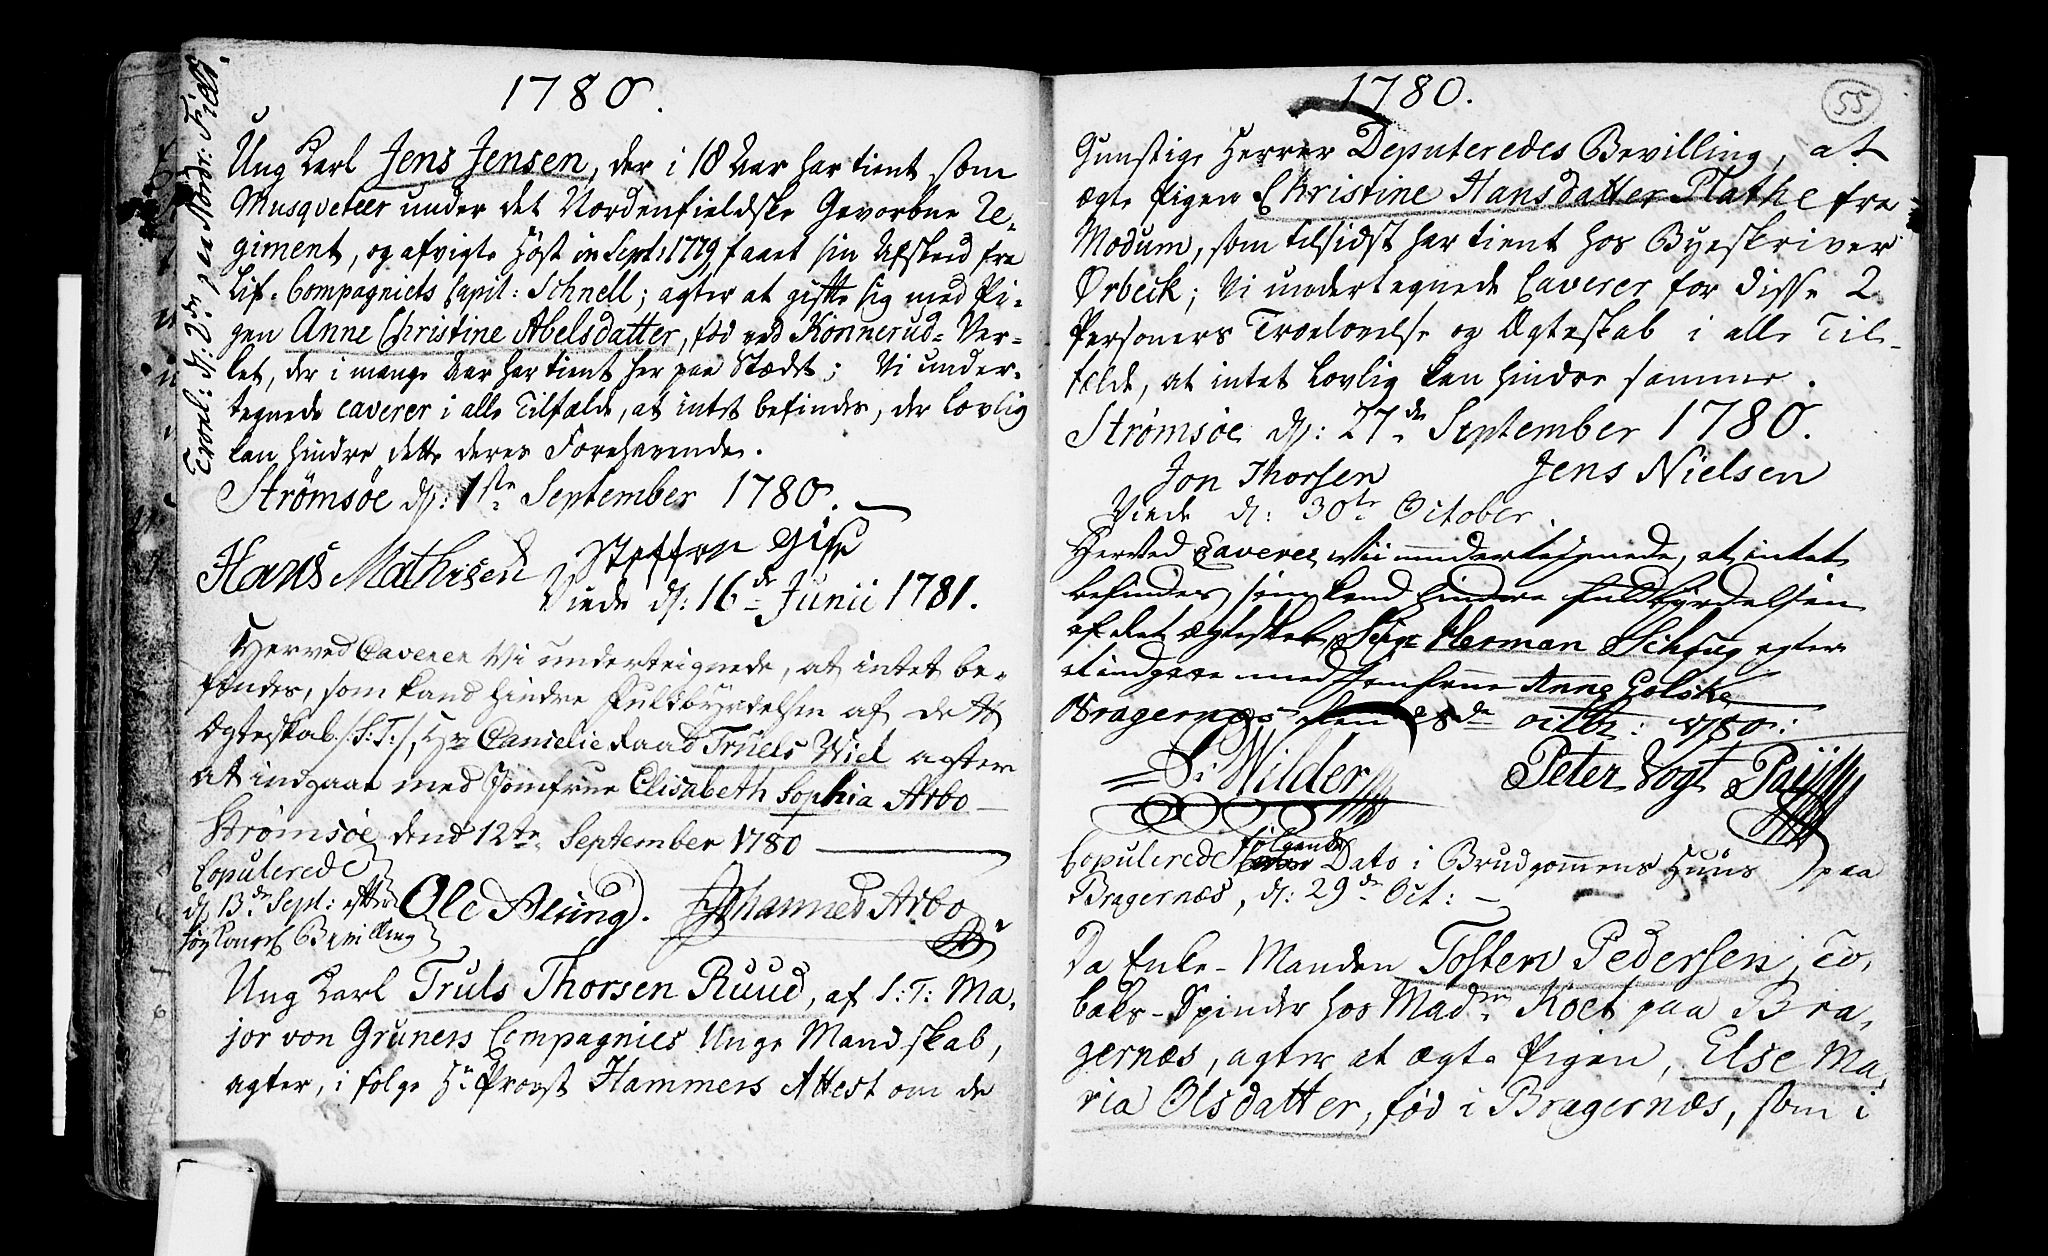 1780.
Trolov: d: 2de paa Nordr: Field.
Ung Karl Jens Jensen, der i 18 Aar har tient som
Musqveteer under det Nordenfieldske Gevorbne Re-
giment, og afvigte Høst in Sept: 1779 faaet sin Afskeed fra
Lif-Compagniets Capit: Schnell; agter at gifte sig med Pi-
gen Anne Christine Abelsdatter, fød ved Konnerud-Ver-
ket, der i mange Aar har tient her paa Stædet; Vi under-
tegnede caverer i alle Tilfælde, at intet befindes, der lovlig
kan hindre dette deres Forehavende.
Strømsøe d: 1ste September 1780.
Hans Mathisen Steffen
Viede d: 16de Junii 1781.
Herved Caverer Vi underteignede, at intet be-
findes, som kand hindre Fuldbyrdelsen af dett
Ægteskab /S:T:/, Hr Cancelie Raad Truels Wiel agter
at indgaae med Jomfrue Elisabeth Sophia Arbo
Strømsøe dend 12te September 1780
Copulerede
d: 13de Sept: efter
Kongel Bevilling
Ole Alsing. Johannes Arbo
Ung Karl Truls Thorsen Ruud, af S:T: Ma-
jor von Gruners Compagnies Unge Mandskab,
agter, i følge Hr Provst Hammers Attest om de
1780.
55
Gunstige Herrer Deputeredes Bevilling, at
ægte Pigen Christine Hansdatter Plathe fra
Modum, som tilsidst har tient hos Byeskriver
Ørbeck; Vi undertegnede Caverer for disse 2
Personers Trolovelse og Ægteskab i alle Til-
fælde, at intet lovlig kan hindre samme.
Strømsøe d: 27de September 1780.
Jon Thorsen Jens Nielsen
Viede d: 30te October
Herved Caverer Vii undertejgnede, at intet
befindes, som kand hindre fuldbyrdelsen
af det ægteskab, Sigr Herman Schoug agter
at indgaae med Jomfrue Anne Colske
Bragernæs den 28de octbr: 1780:
S: Wilder Peter Vogt Paij
Copulerede følgende Dato i Brudgommens Huus paa
Bragernæs, d: 29de Oct:
Da Enke-Manden Tosten Pedersen, To-
baks-Spinder hos Madm Koet paa Bra-
gernæs, agter at ægte Pigen, Else Ma-
ria Olsdatter, fød i Bragernæs, som i